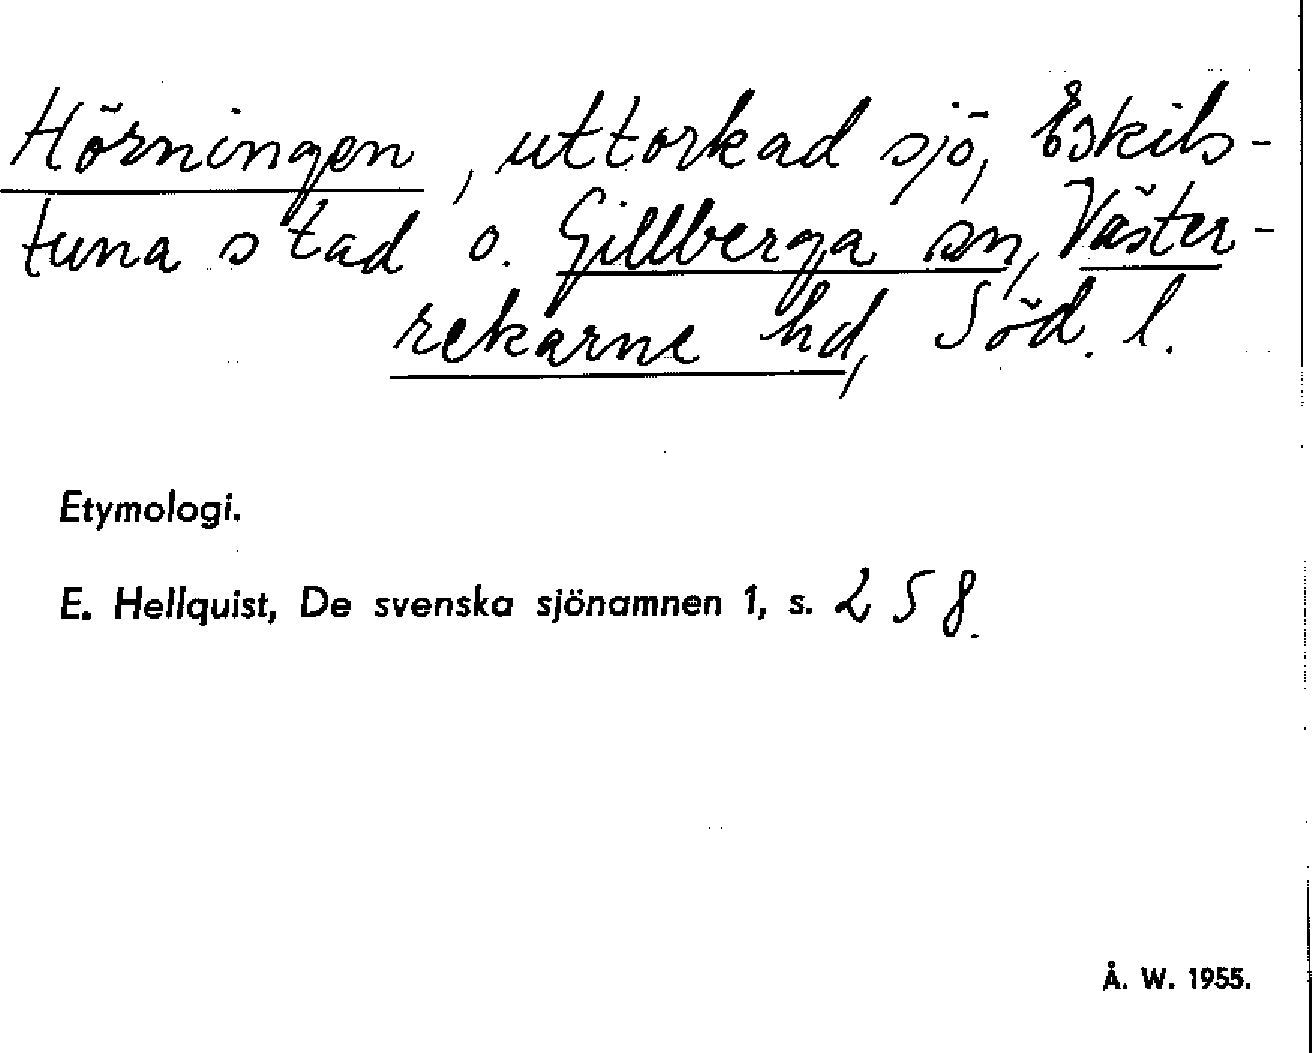 Hörningen, uttorkad sjö, Eskils-
tuna stad o. Gillberga sn, Väster-
rekarne hd, Söd. l.
Etymologi.
E. Hellquist, De svenska sjönamnen 1, s. 258.
Å. W. 1955.